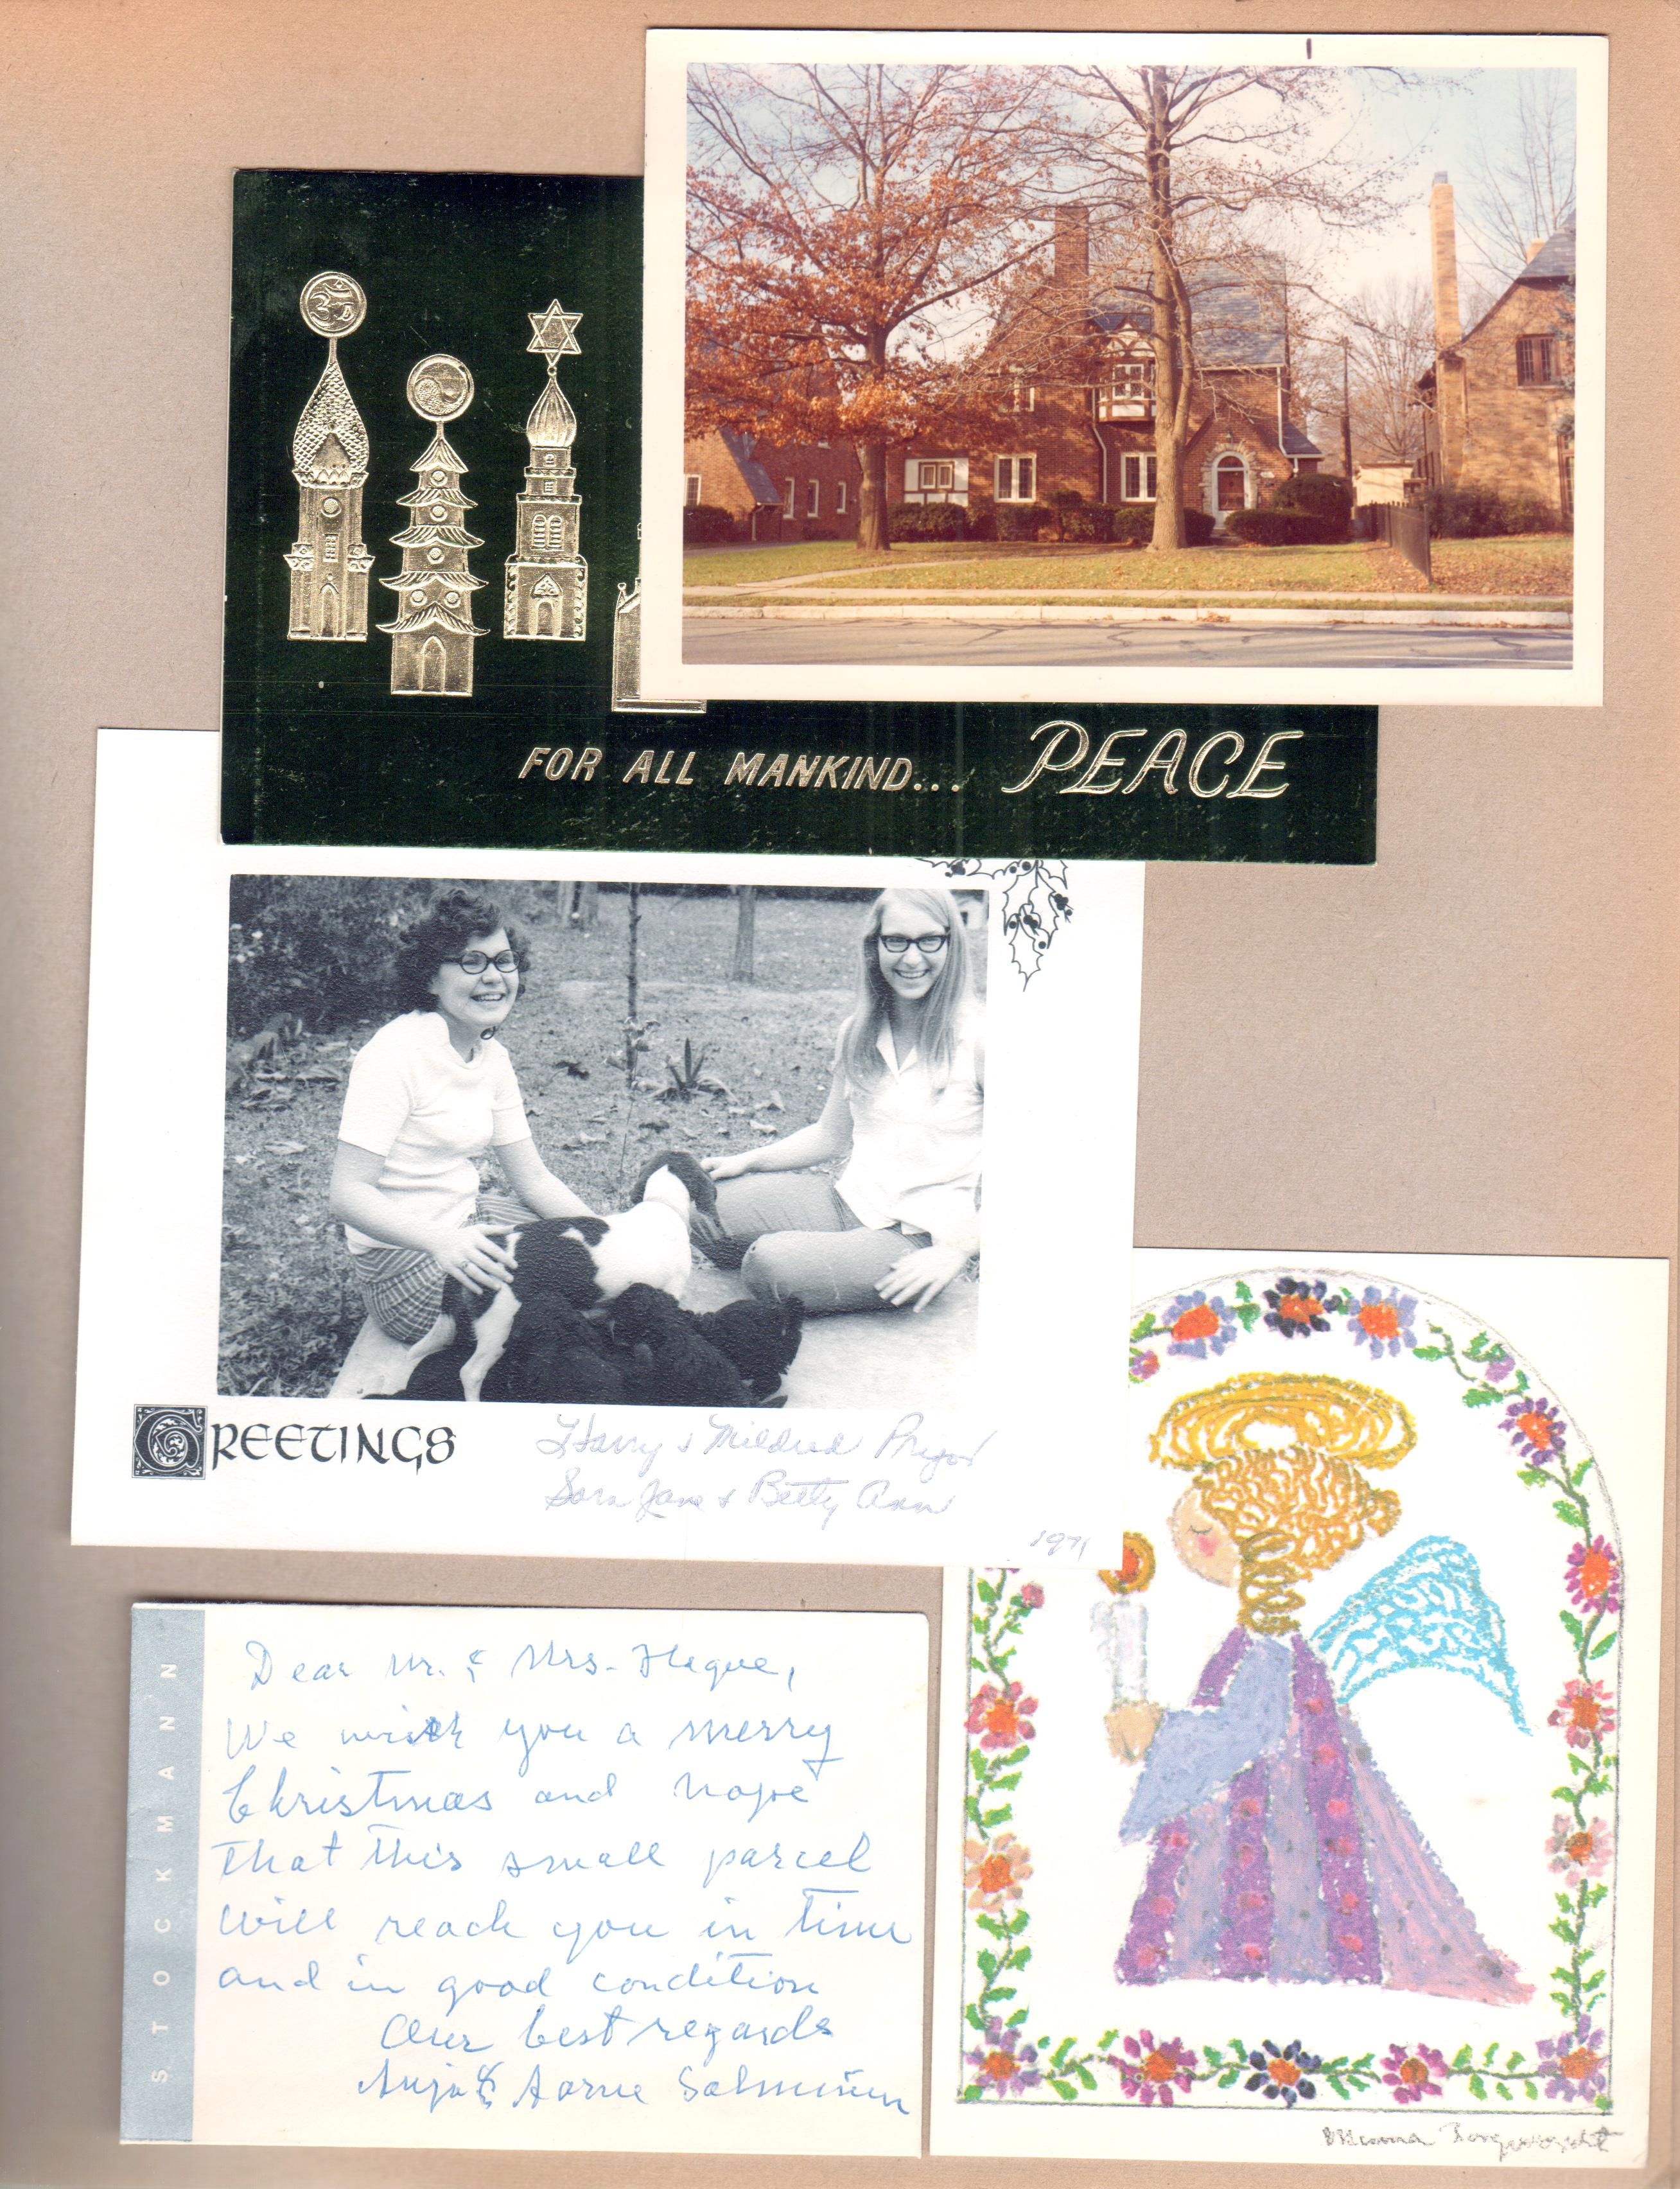 FOR ALL MANKIND... PEACE
GREETINGS
Harry & Mildred Pryor
Sara Jane & Betty Ann
1971
STOCKMANN
Dear Mr. & Mrs. Hague,
We wish you a merry
Christmas and hope
that this small parcel
will reach you in time
and in good condition
Our best regards
Anja & Aarne Salminen